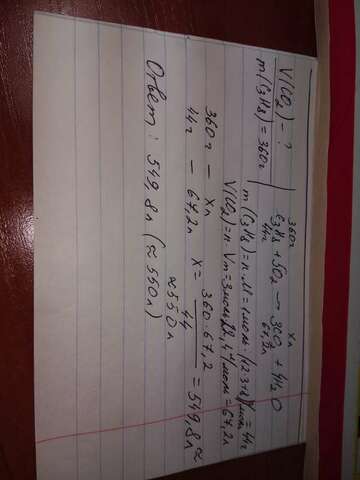 V(CO₂) - ?
m(C₃H₈) = 360г
360г    xл
C₃H₈ + 5O₂ → 3CO₂ + 4H₂O
44г    67,2л
m(C₃H₈) = n·M = 1моль·(12·3+8)г/моль = 44г
V(CO₂) = n·Vm = 3моль·22,4л/моль = 67,2л
360г — xл
44г — 67,2л    x = 360·67,2 / 44 = 549,8л ≈
≈ 550л
Ответ: 549,8л (≈ 550л)